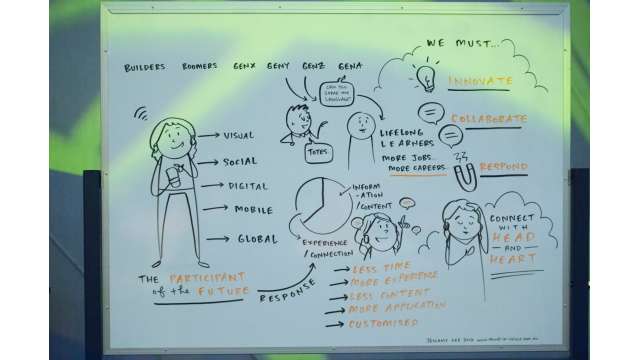 BUILDERS BOOMERS GENX GENY GENZ GENA
WE MUST...
CAN YOU
SPEAK MY
LANGUAGE?
TOTES.
INNOVATE
COLLABORATE
RESPOND
LIFELONG
LEARNERS
MORE JOBS..
MORE CAREERS
VISUAL
SOCIAL
DIGITAL
MOBILE
GLOBAL
INFORM
-ATION
/CONTENT
EXPERIENCE
/CONNECTION
THE PARTICIPANT
of the FUTURE
RESPONSE
LESS TIME
MORE EXPERIENCE
LESS CONTENT
MORE APPLICATION
CUSTOMISED
CONNECT
WITH
HEAD
— AND —
HEART